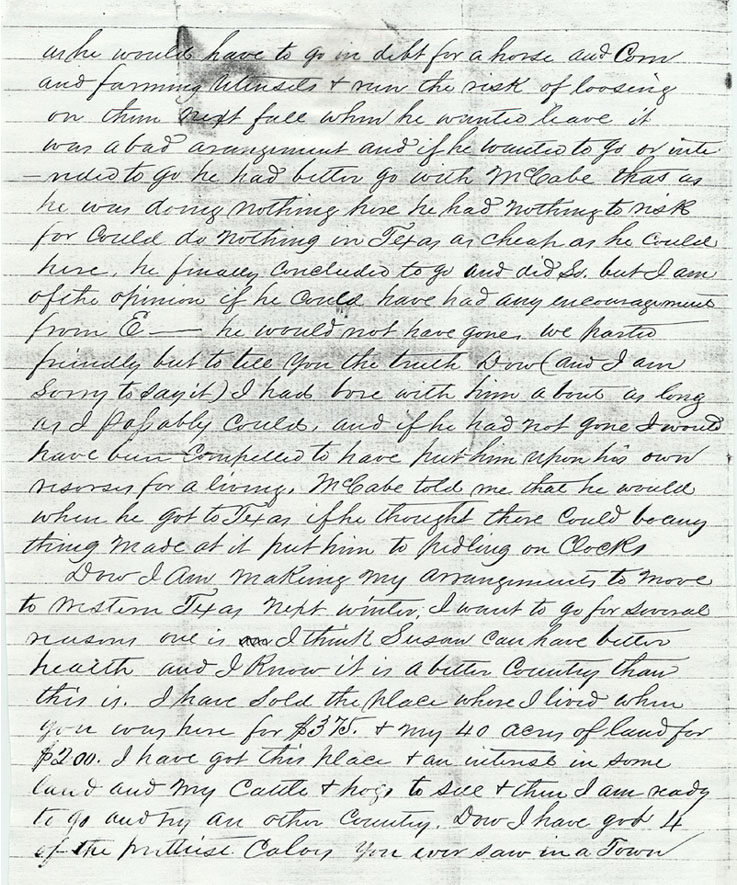 as he would have to go in debt for a horse and Corn
and farming utensels & run the risk of loosing
on them next fall when he wanted leave it
was a bad arangement and if he wanted to go or inte
-nded to go he had better go with McCabe that as
he was doing nothing here he had nothing to risk
for Could do nothing in Texas as cheap as he could
here, he finally Concluded to go and did So. but I am
of the opinion if he Could have had any encouragement
from E—— he would not have gone, we parted
friendly but to tell you the truth Dow (and I am
Sorry to say it) I had bore with him about as long
as I Possably Could, and if he had not gone I would
have been Compelled to have put him upon his own
resorses for a living, McCabe told me that he would
when he got to Texas if he thought there Could be any
thing made at it put him to pedling on Clocks
Dow I Am making my arrangements to move
to western Texas next winter, I want to go for several
reasons one is I think Susan can have better
health and I Know it is a better Country than
this is. I have Sold the place where I lived when
you was here for $375. & my 40 acres of land for
$200. I have got this place & an intrest in some
land and my Cattle & hogs to sell & then I am ready
to go and try an other Country. Dow I have got 4
of the prittiest Colors you ever saw in a Town